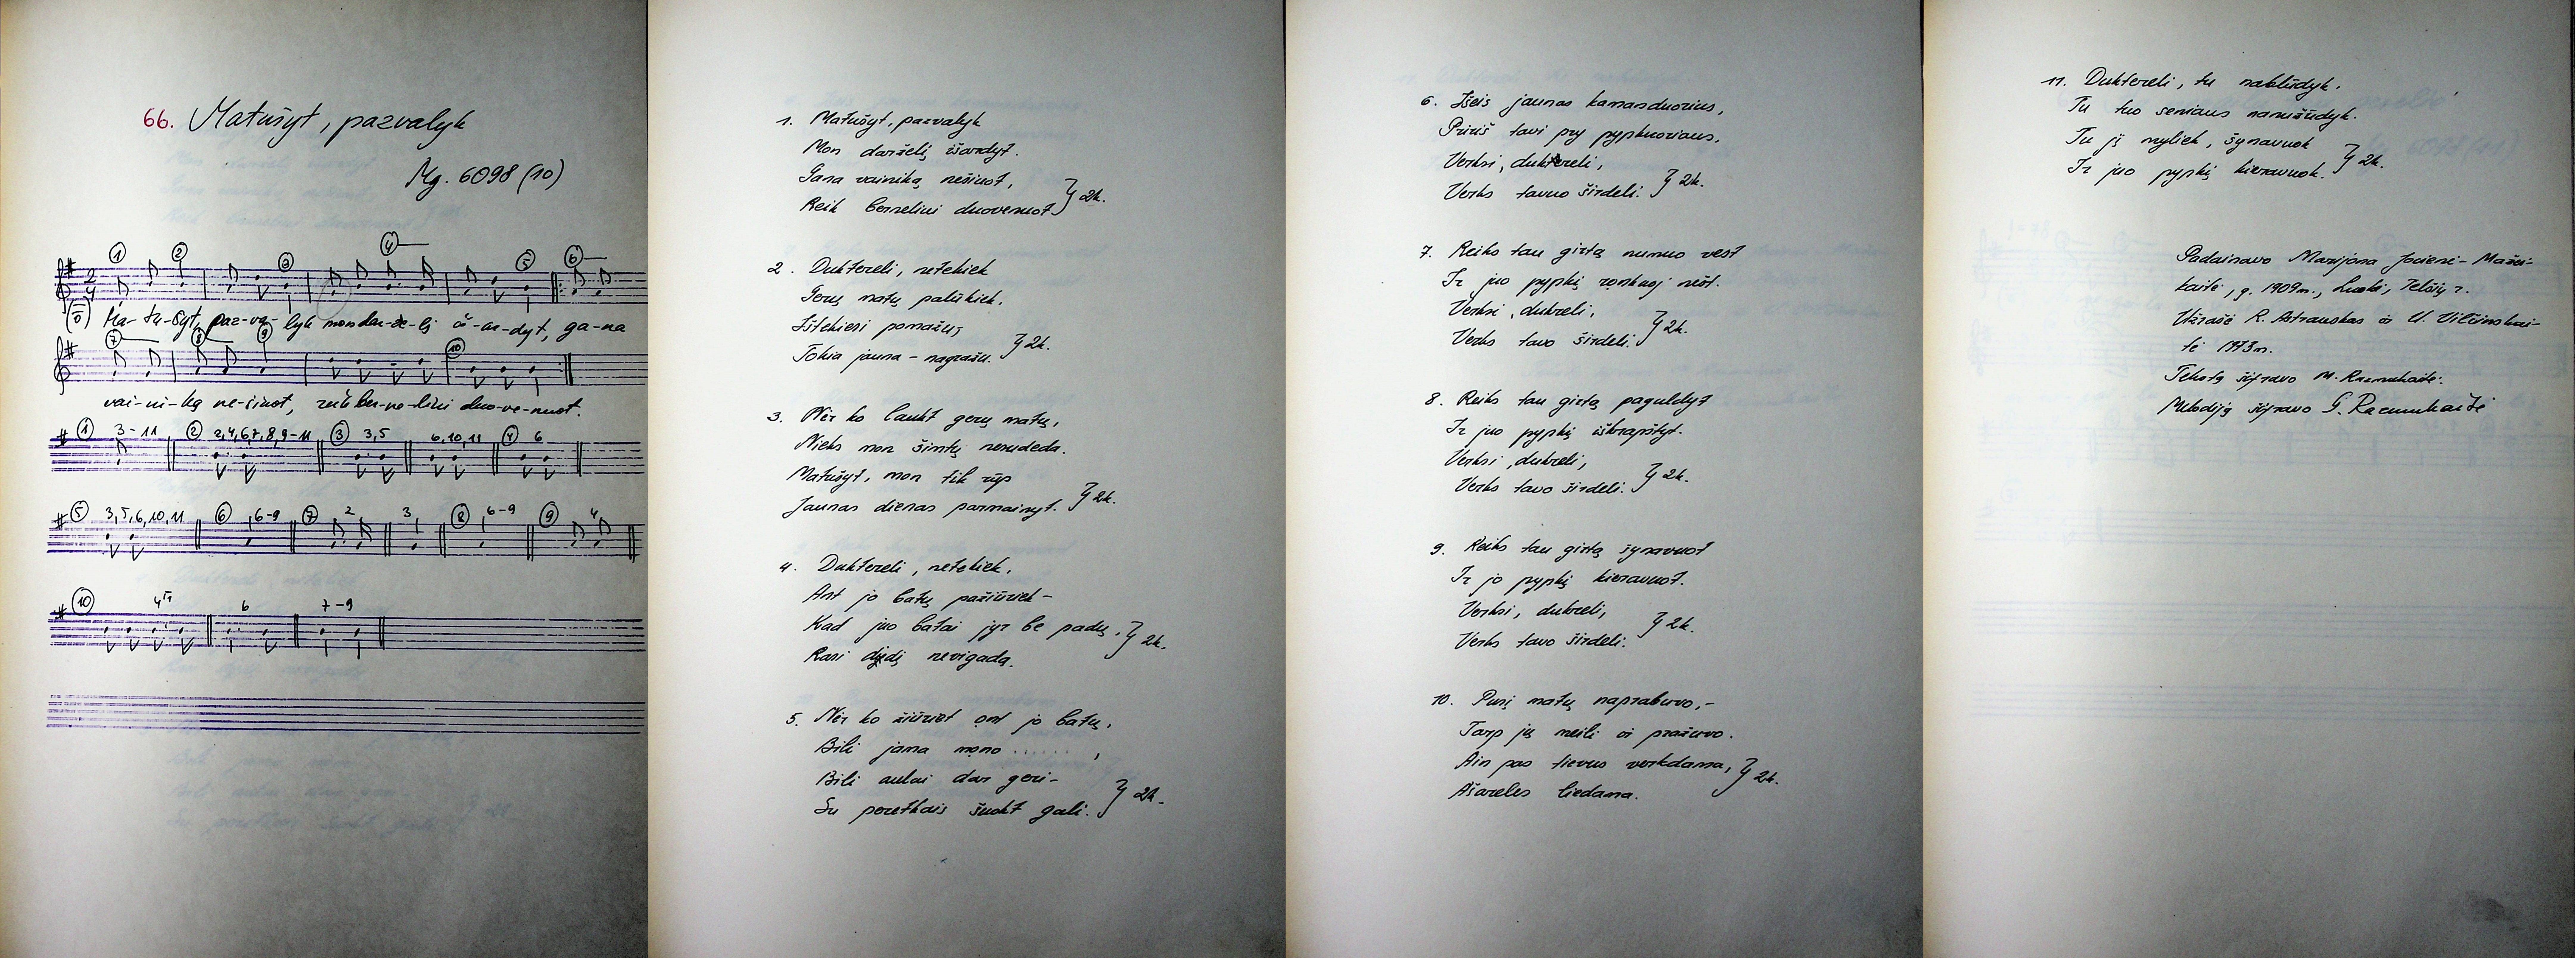 66. Matušyt, pazvalyk
Mg. 6098 (10)
① ② ③ ④ ⑤ ⑥
2
4
Ma-tu-šyt, paz-va-lyk mon dar-že-lį iš-ar-dyt, ga-na
⑦ ⑧ ⑨ ⑩
vai-ni-ką ne-šiuot, reik ber-ne-liui duo-ve-nuot.
① 3-11 ② 2,4,6,7,8,9-11 ③ 3,5 6,10,11 ④ 6
⑤ 3,5,6,10,11 ⑥ 6-9 ⑦ 2 3 ⑧ 6-9 ⑨ 4
⑩ 4 6 7-9
1. Matušyt, pazvalyk
Mon darželį išardyt.
Gana vainiką nešiuot,
Reik berneliui duovenuot } 2k.
2. Duktereli, netekiek
Gerų matų palūkiek.
Ištekiesi pomažu,
Tokia jauna – nagražu. } 2k.
3. Nėr ko laukt gerų matų,
Nieks mon šimtų nesudeda.
Matušyt, mon tik rūp
Jaunas dienas parmainyt. } 2k.
4. Duktereli, netekiek.
Ant jo batų pažiūriek –
Kad juo batai jyr be padų, } 2k.
Rasi didį nevigadą.
5. Nėr ko žiūriet ont jo batų,
Bili jama mono ......,
Bili aulai dar geri –
Su poretkais šuokt gali. } 2k.
6. Išeis jaunas kamanduorius,
Pririš tavi pry pypkuoriaus,
Verksi, duktereli,
Verks tavuo širdeli. } 2k.
7. Reiks tau girtą numuo vest
Ir juo pypkį ronkuoj nešt.
Verksi, dukreli,
Verks tavo širdeli. } 2k.
8. Reiks tau girtą paguldyt
Ir juo pypkį iškrapštyt.
Verksi, dukreli,
Verks tavo širdeli. } 2k.
9. Reiks tau girtą šynavuot
Ir jo pypkį kieravuot.
Verksi, dukreli,
Verks tavo širdeli. } 2k.
10. Pusį matų naprabuvo, –
Tarp jų meili iš pražuvo.
Ain pas tievus verkdama, } 2k.
Ašareles liedama.
11. Duktereli, tu nabliūdyk.
Tu tuo seniaus nanužūdyk.
Tu jį myliek, šynavuok
Ir juo pypkį kieravuok. } 2k.
Padainavo Marijona Jocienė-Mažei-
kaitė, g. 1909 m., Luokė, Telšių r.
Užrašė R. Astrauskas ir U. Vilčinskai-
tė 1973 m.
Tekstą šifravo M. Razmukaitė.
Melodiją šifravo G. Razmukaitė